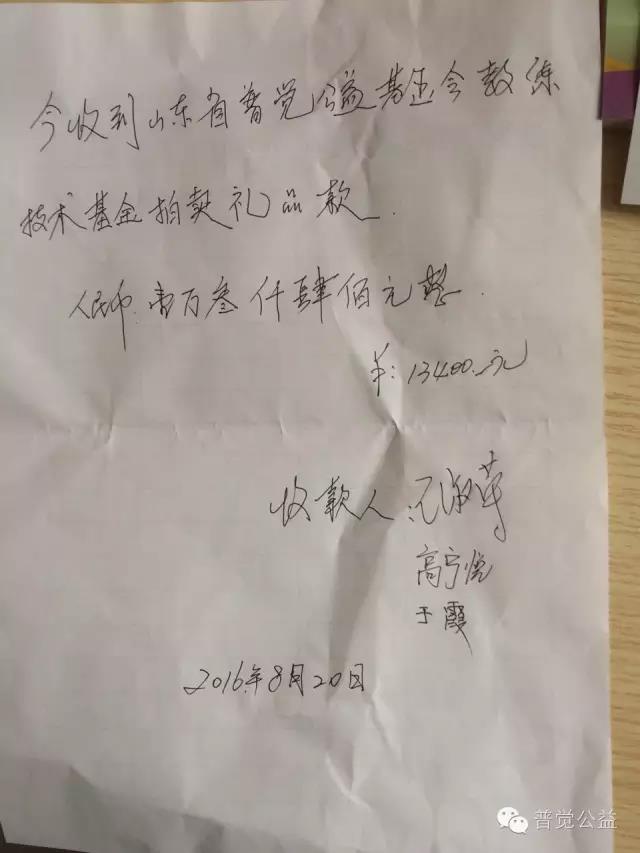 今收到山东省普觉公益基金会教练
技术基金拍卖礼品款.
人民币.壹万叁仟肆佰元整.
￥:13400.元
收款人
高宁悦
于霞
2016年8月20日
普觉公益